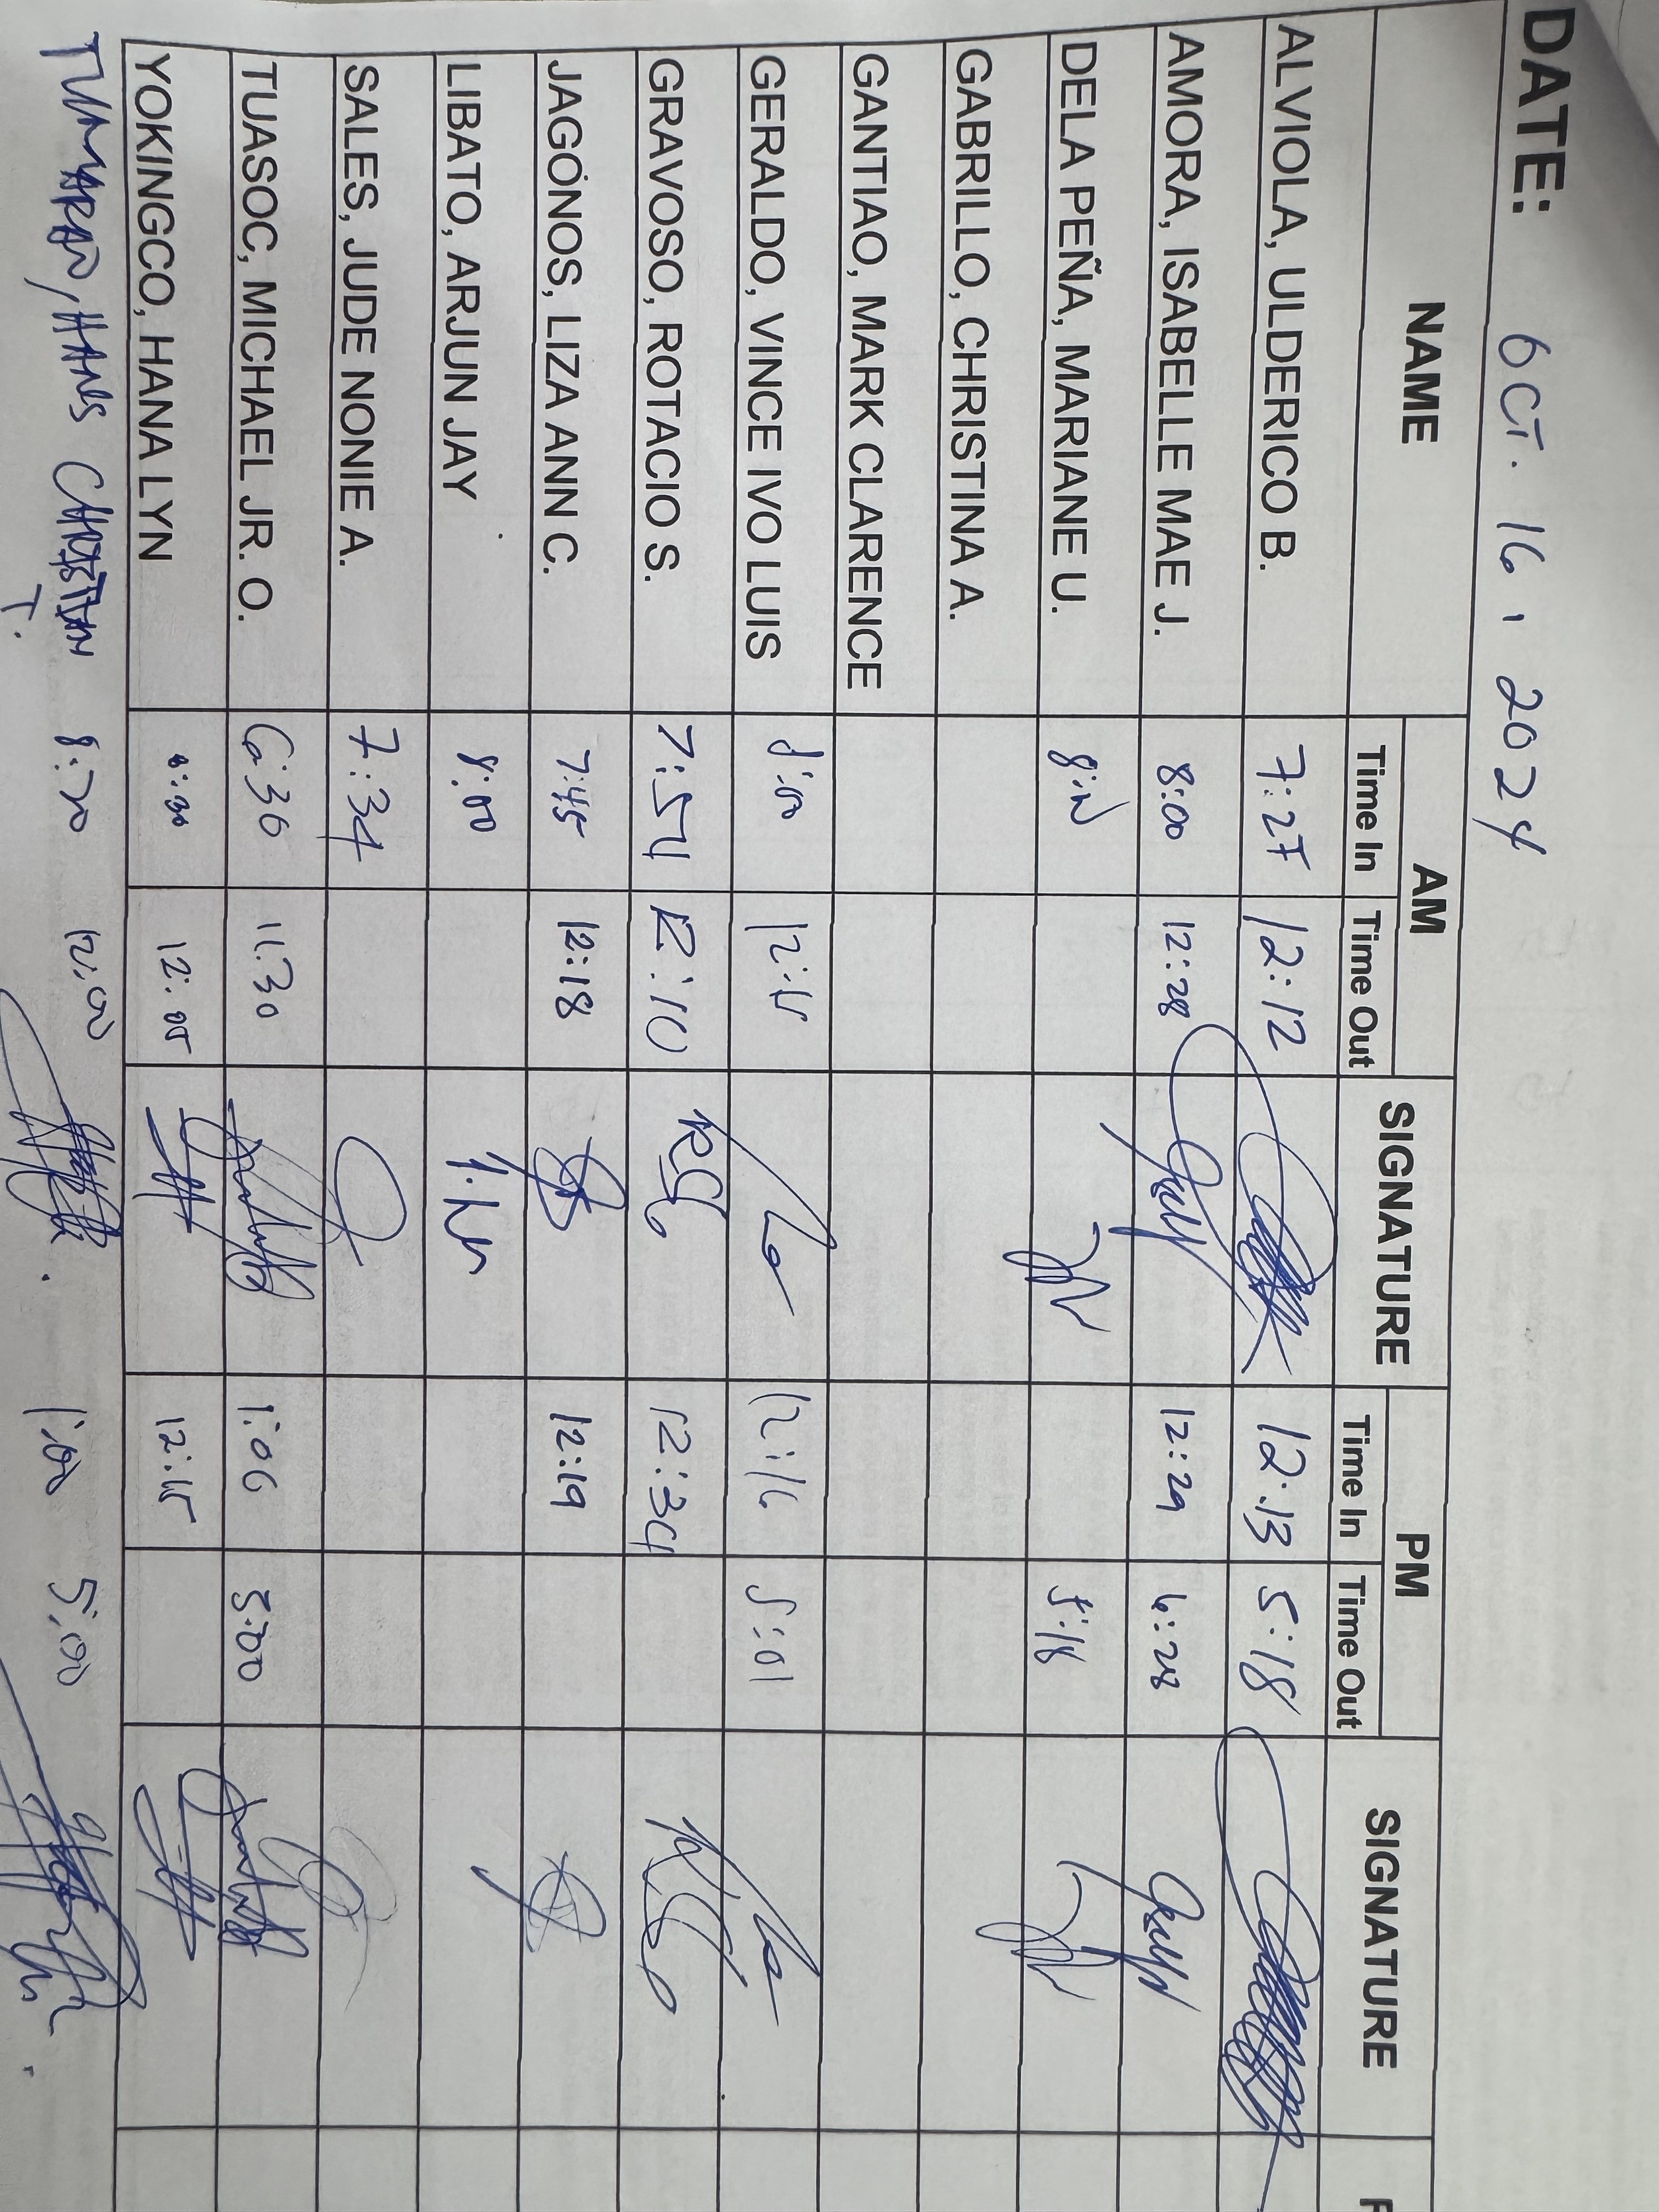 DATE: OCT. 16, 2024
NAME AM SIGNATURE PM SIGNATURE
Time In Time Out Time In Time Out
ALVIOLA, ULDERICO B. 7:27 12:12 12:13 5:18
AMORA, ISABELLE MAE J. 8:00 12:28 12:29 6:28
DELA PEÑA, MARIANE U. 5:18
GABRILLO, CHRISTINA A.
GANTIAO, MARK CLARENCE
GERALDO, VINCE IVO LUIS 12:15 12:16 5:01
GRAVOSO, ROTACIO S. 7:54 12:10 12:34
JAGONOS, LIZA ANN C. 7:45 12:18 12:19
LIBATO, ARJUN JAY 8:00
SALES, JUDE NONIE A. 7:34
TUASOC, MICHAEL JR. O. 6:36 11:30 1:06 5:00
YOKINGCO, HANA LYN 12:05 12:15
HANS CHRISTIAN T. 12:00 1:00 5:00